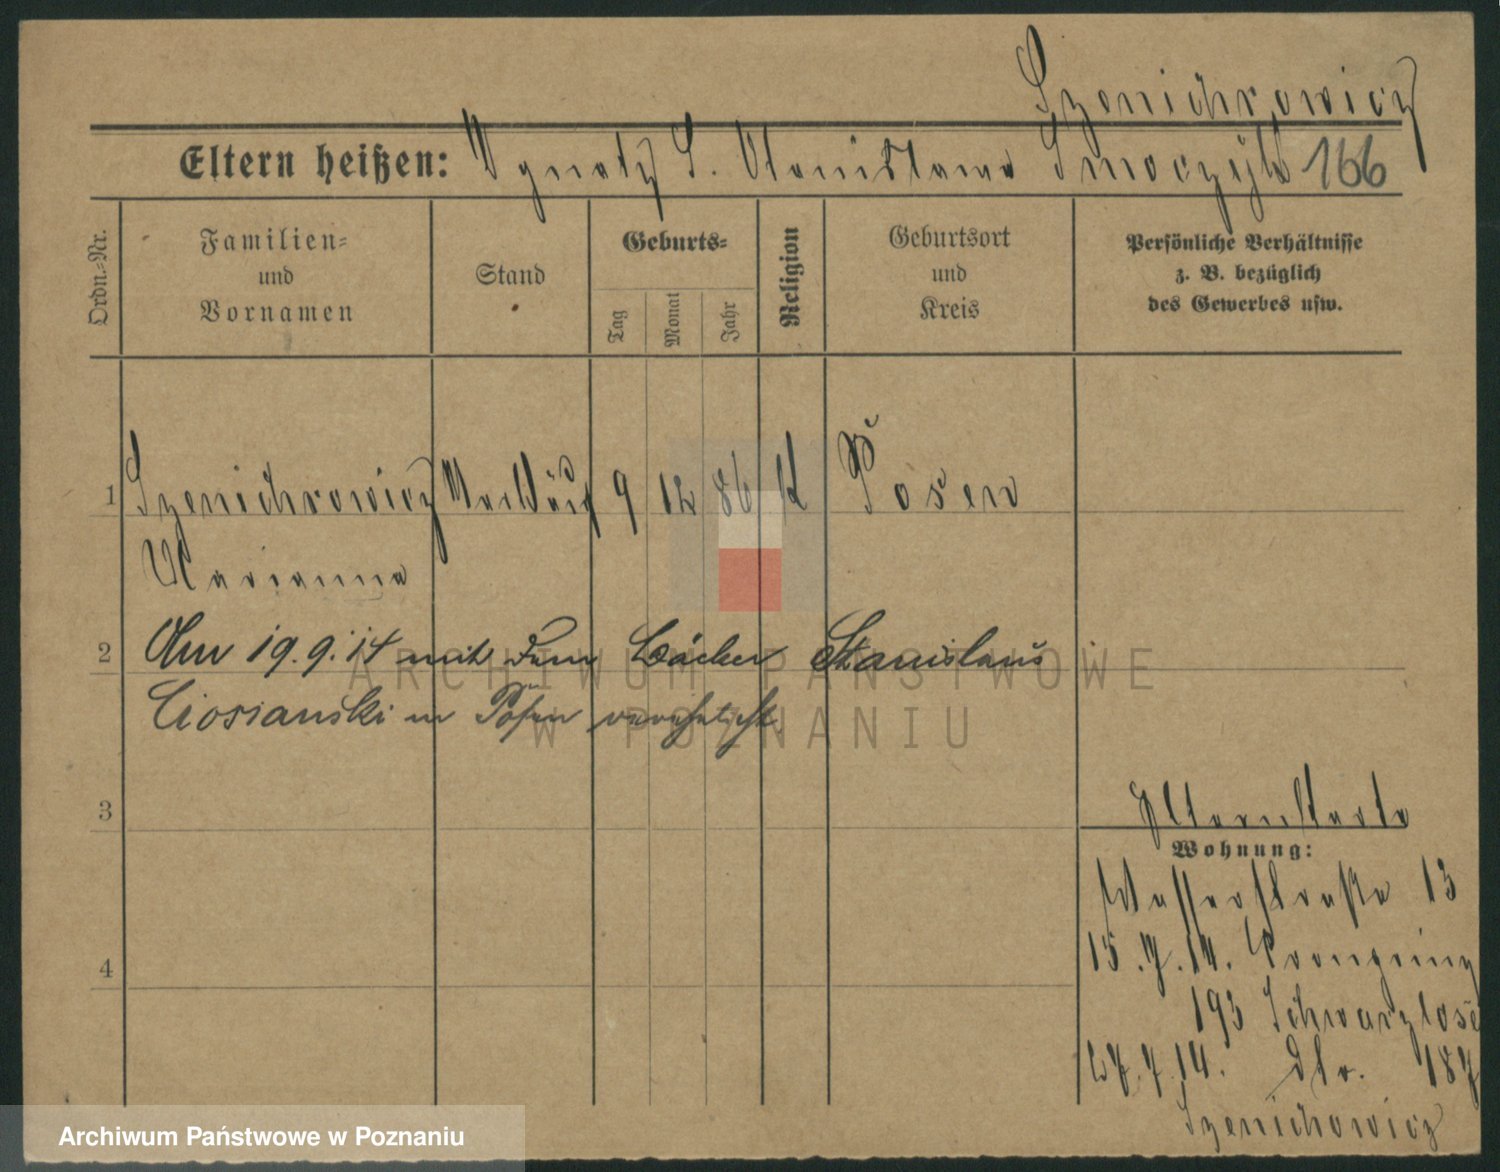 Szenichrowicz
Eltern heißen: Ignatz S. Stanislawa Smoczyk 166
Ordn.-Nr.
Familien- und Vornamen
Stand
Geburts-
Tag
Monat
Jahr
Religion
Geburtsort und Kreis
Persönliche Verhältnisse
z. B. bezüglich
des Gewerbes usw.
1 Szenichrowicz 9 12 86 K Posen
Marianna
2 Am 19.9.14 mit dem Bäcker Stanislaus
Ciosianski in Posen verehelicht
3
Elternkarte
Wohnung:
Wasserstraße 13
15.7.14. Kronprinz
193 Schwarzlose
4
27.7.14. dto. 187
Szenichowicz
ARCHIWUM PAŃSTWOWE
W POZNANIU
Archiwum Państwowe w Poznaniu